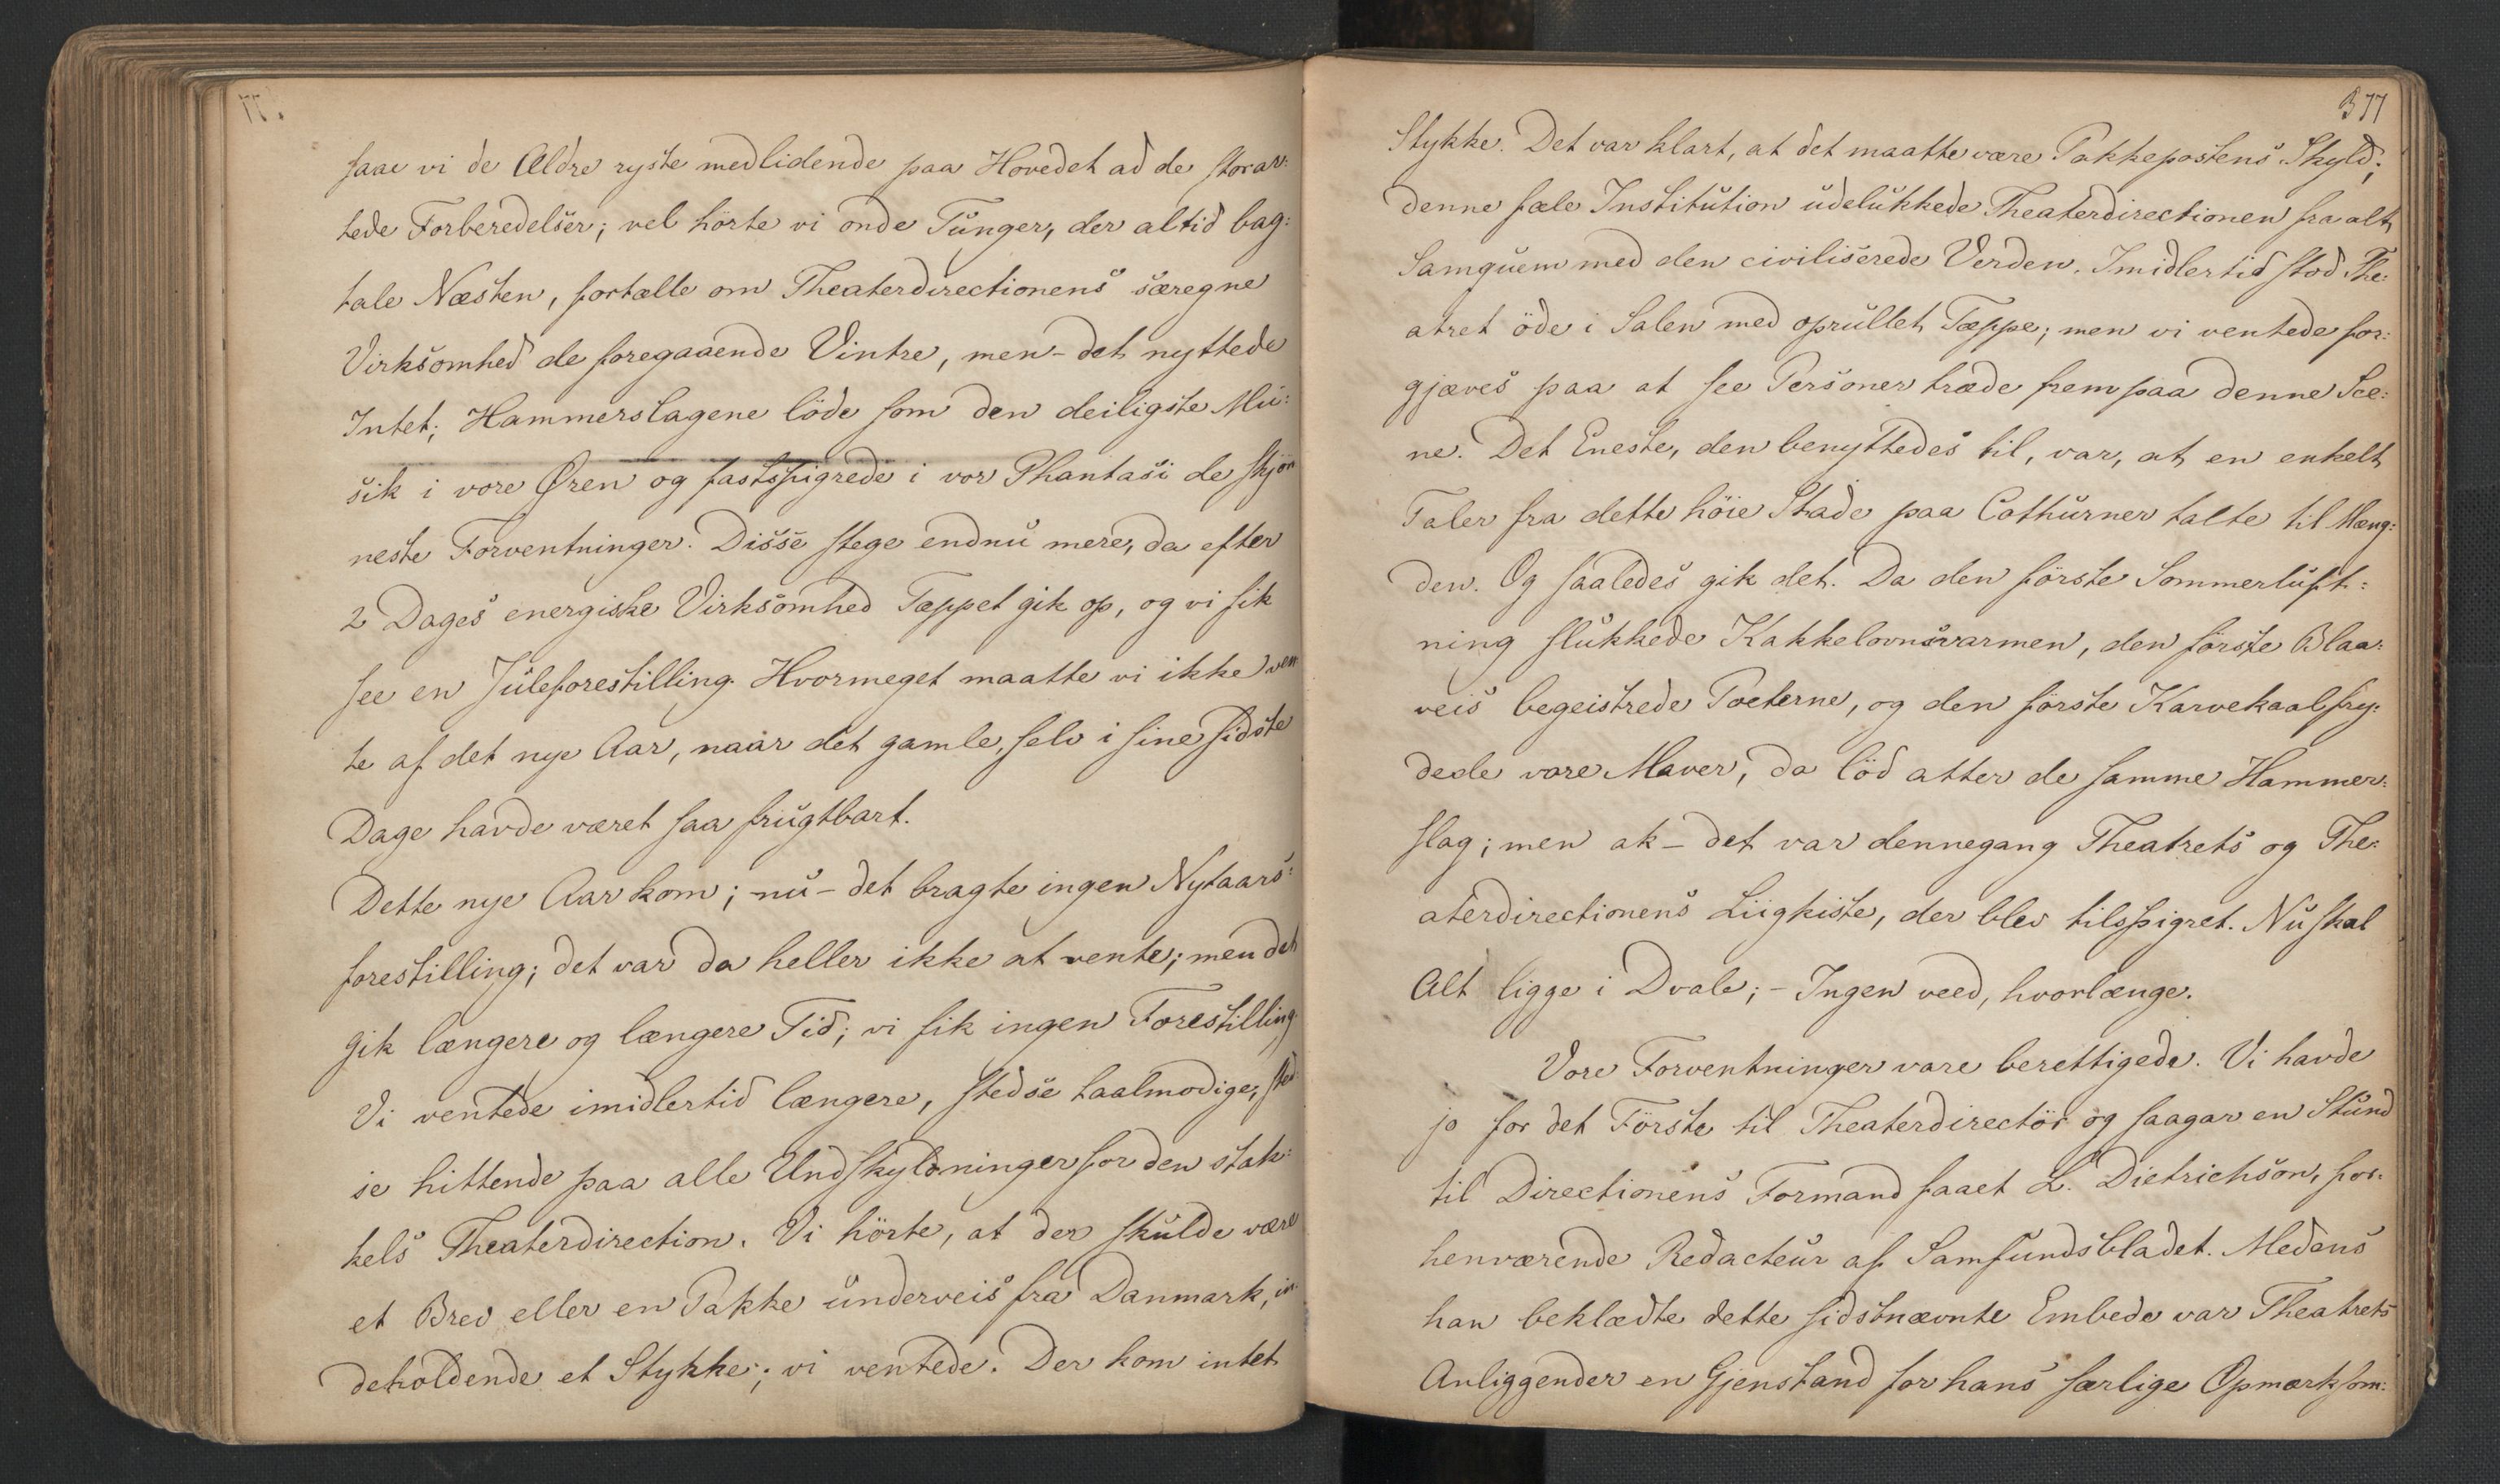 saae vi de Ældre ryste medlidende paa Hovedet ad de storar:
tede Forberedelser; vel hörte vi onde Tunger, der altid bag:
tale Næsten, fortælle om Theaterdirectionens særegne
Virksomhed de foregaaende Vintre, men – det nyttede
Intet; Hammerslagene löde som den deiligste Mu:
sik i vore Øren og fastspigrede i vor Phantasi de skjön
neste Forventninger. Disse stege endnu mere, da efter
2 Dages energiske Virksomhed Tæppet gik op, og vi fik
see en Juleforestilling. Hvormeget maatte vi ikke ven
te af det nye Aar, naar det gamle, selv i sine sidste
Dage havde været saa frugtbart.
Dette nye Aar kom; nu – det bragte ingen Nytaars:
forestilling; det var da heller ikke at vente; men det
gik længere og længere Tid; vi fik ingen Forestilling.
Vi ventede imidlertid længere, stedse taalmodige, sted:
se hittende paa alle Undskyldninger for den stak:
kels Theaterdirection. Vi hörte, at der skulde være
et Brev eller en Pakke underveis fra Danmark, in:
deholdende et Stykke; vi ventede. Der kom intet
377
Stykke. Det var klart, at det maatte være Pakkepostens Skyld;
denne fæle Institution udelukkede Theaterdirectionen fra alt
Samquem med den civiliserede Verden. Imidlertid stod The:
atret öde i Salen med oprullet Tæppe; men vi ventede for:
gjæves paa at see Personer træde frem paa denne Sce:
ne. Det Eneste, den benyttedes til, var, at en enkelt
Taler fra dette höie Stade paa Cothurner talte til Mæng:
den. Og saaledes gik det. Da den förste Sommerluft:
ning slukkede Kakkelovnsvarmen, den förste Blaa:
veis begeistrede Poeterne, og den förste Karvekaal fry:
dede vore Maver, da löd atter de samme Hammer:
slag; men ak – det var dennegang Theatrets og The:
aterdirectionens Liigkiste, der blev tilspigret. Nu skal
Alt ligge i Dvale; – Ingen veed, hvorlænge.
Vore Forventninger vare berettigede. Vi havde
jo for det Förste til Theaterdirectör og saagar en Stund
til Directionens Formand faaet L. Dietrichson, for:
henværende Redacteur af Samfundsbladet. Medens
han beklædte dette sidstnævnte Embede var Theatrets
Anliggender en Gjenstand for hans særlige Opmærksom: